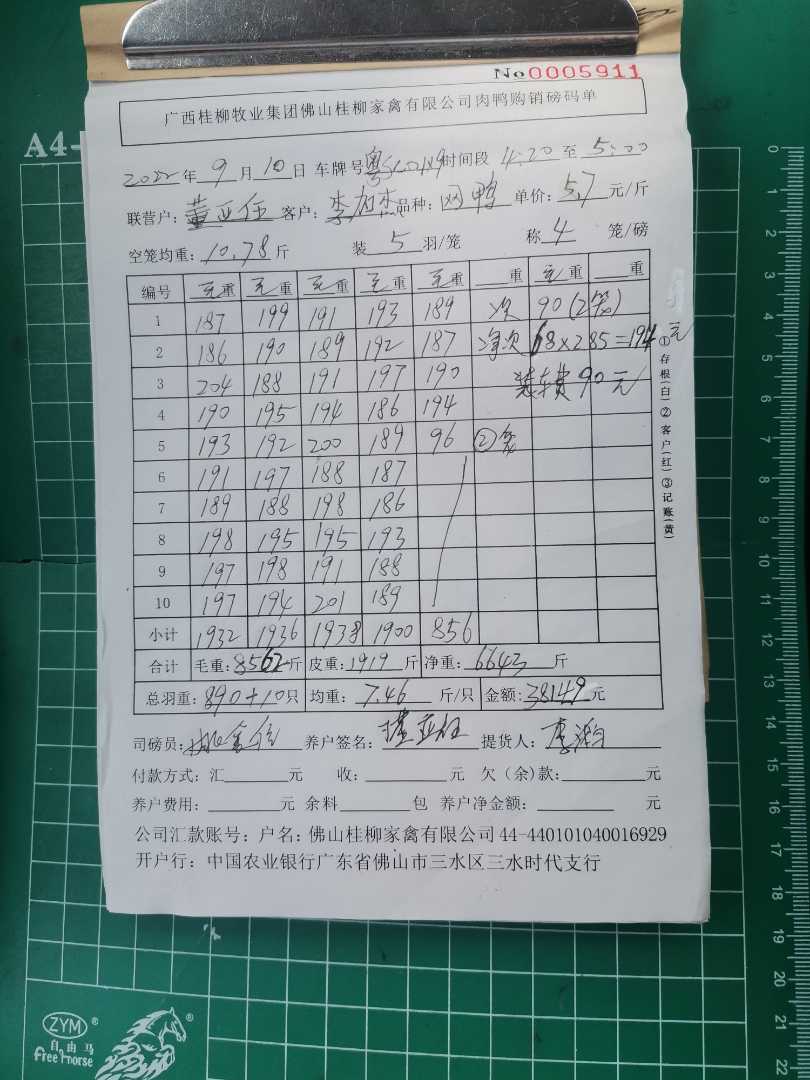 No0005911
广西桂柳牧业集团佛山桂柳家禽有限公司肉鸭购销磅码单
A4-
2022年 9 月 10 日 车牌号 粤 时间段 4:20 至 5:00
联营户: 董亚任 客户: 李旭杰 品种: 鸭 单价: 5.7 元/斤
空笼均重: 10.78 斤 装 5 羽/笼 称 4 笼/磅
编号 毛重 毛重 毛重 毛重 毛重 重 毛重 重
1 187 199 191 193 189 次 90(2笼)
2 186 190 189 192 187 净次 68×2.85=194元
3 204 188 191 197 190 装车费90元
4 190 195 194 186 194
5 193 192 200 189 96 ②笼
6 191 197 188 187
7 189 188 198 186
8 198 195 195 193
9 197 198 191 188
10 197 194 201 189
小计 1932 1936 1938 1900 856
合计 毛重: 8562 斤 皮重: 1919 斤 净重: 6643 斤
总羽重: 890+10 只 均重: 7.46 斤/只 金额: 38149 元
司磅员: 养户签名: 董亚任 提货人:
付款方式: 汇 元 收: 元 欠(余)款: 元
养户费用: 元 余料 包 养户净金额: 元
公司汇款账号: 户名: 佛山桂柳家禽有限公司 44-440101040016929
开户行: 中国农业银行广东省佛山市三水区三水时代支行
①存根(白)②客户(红)③记账(黄)
ZYM®
自由马
Free horse
®
0
1
2
3
4
5
6
7
8
9
10
11
12
13
14
15
16
17
18
19
20
21
22